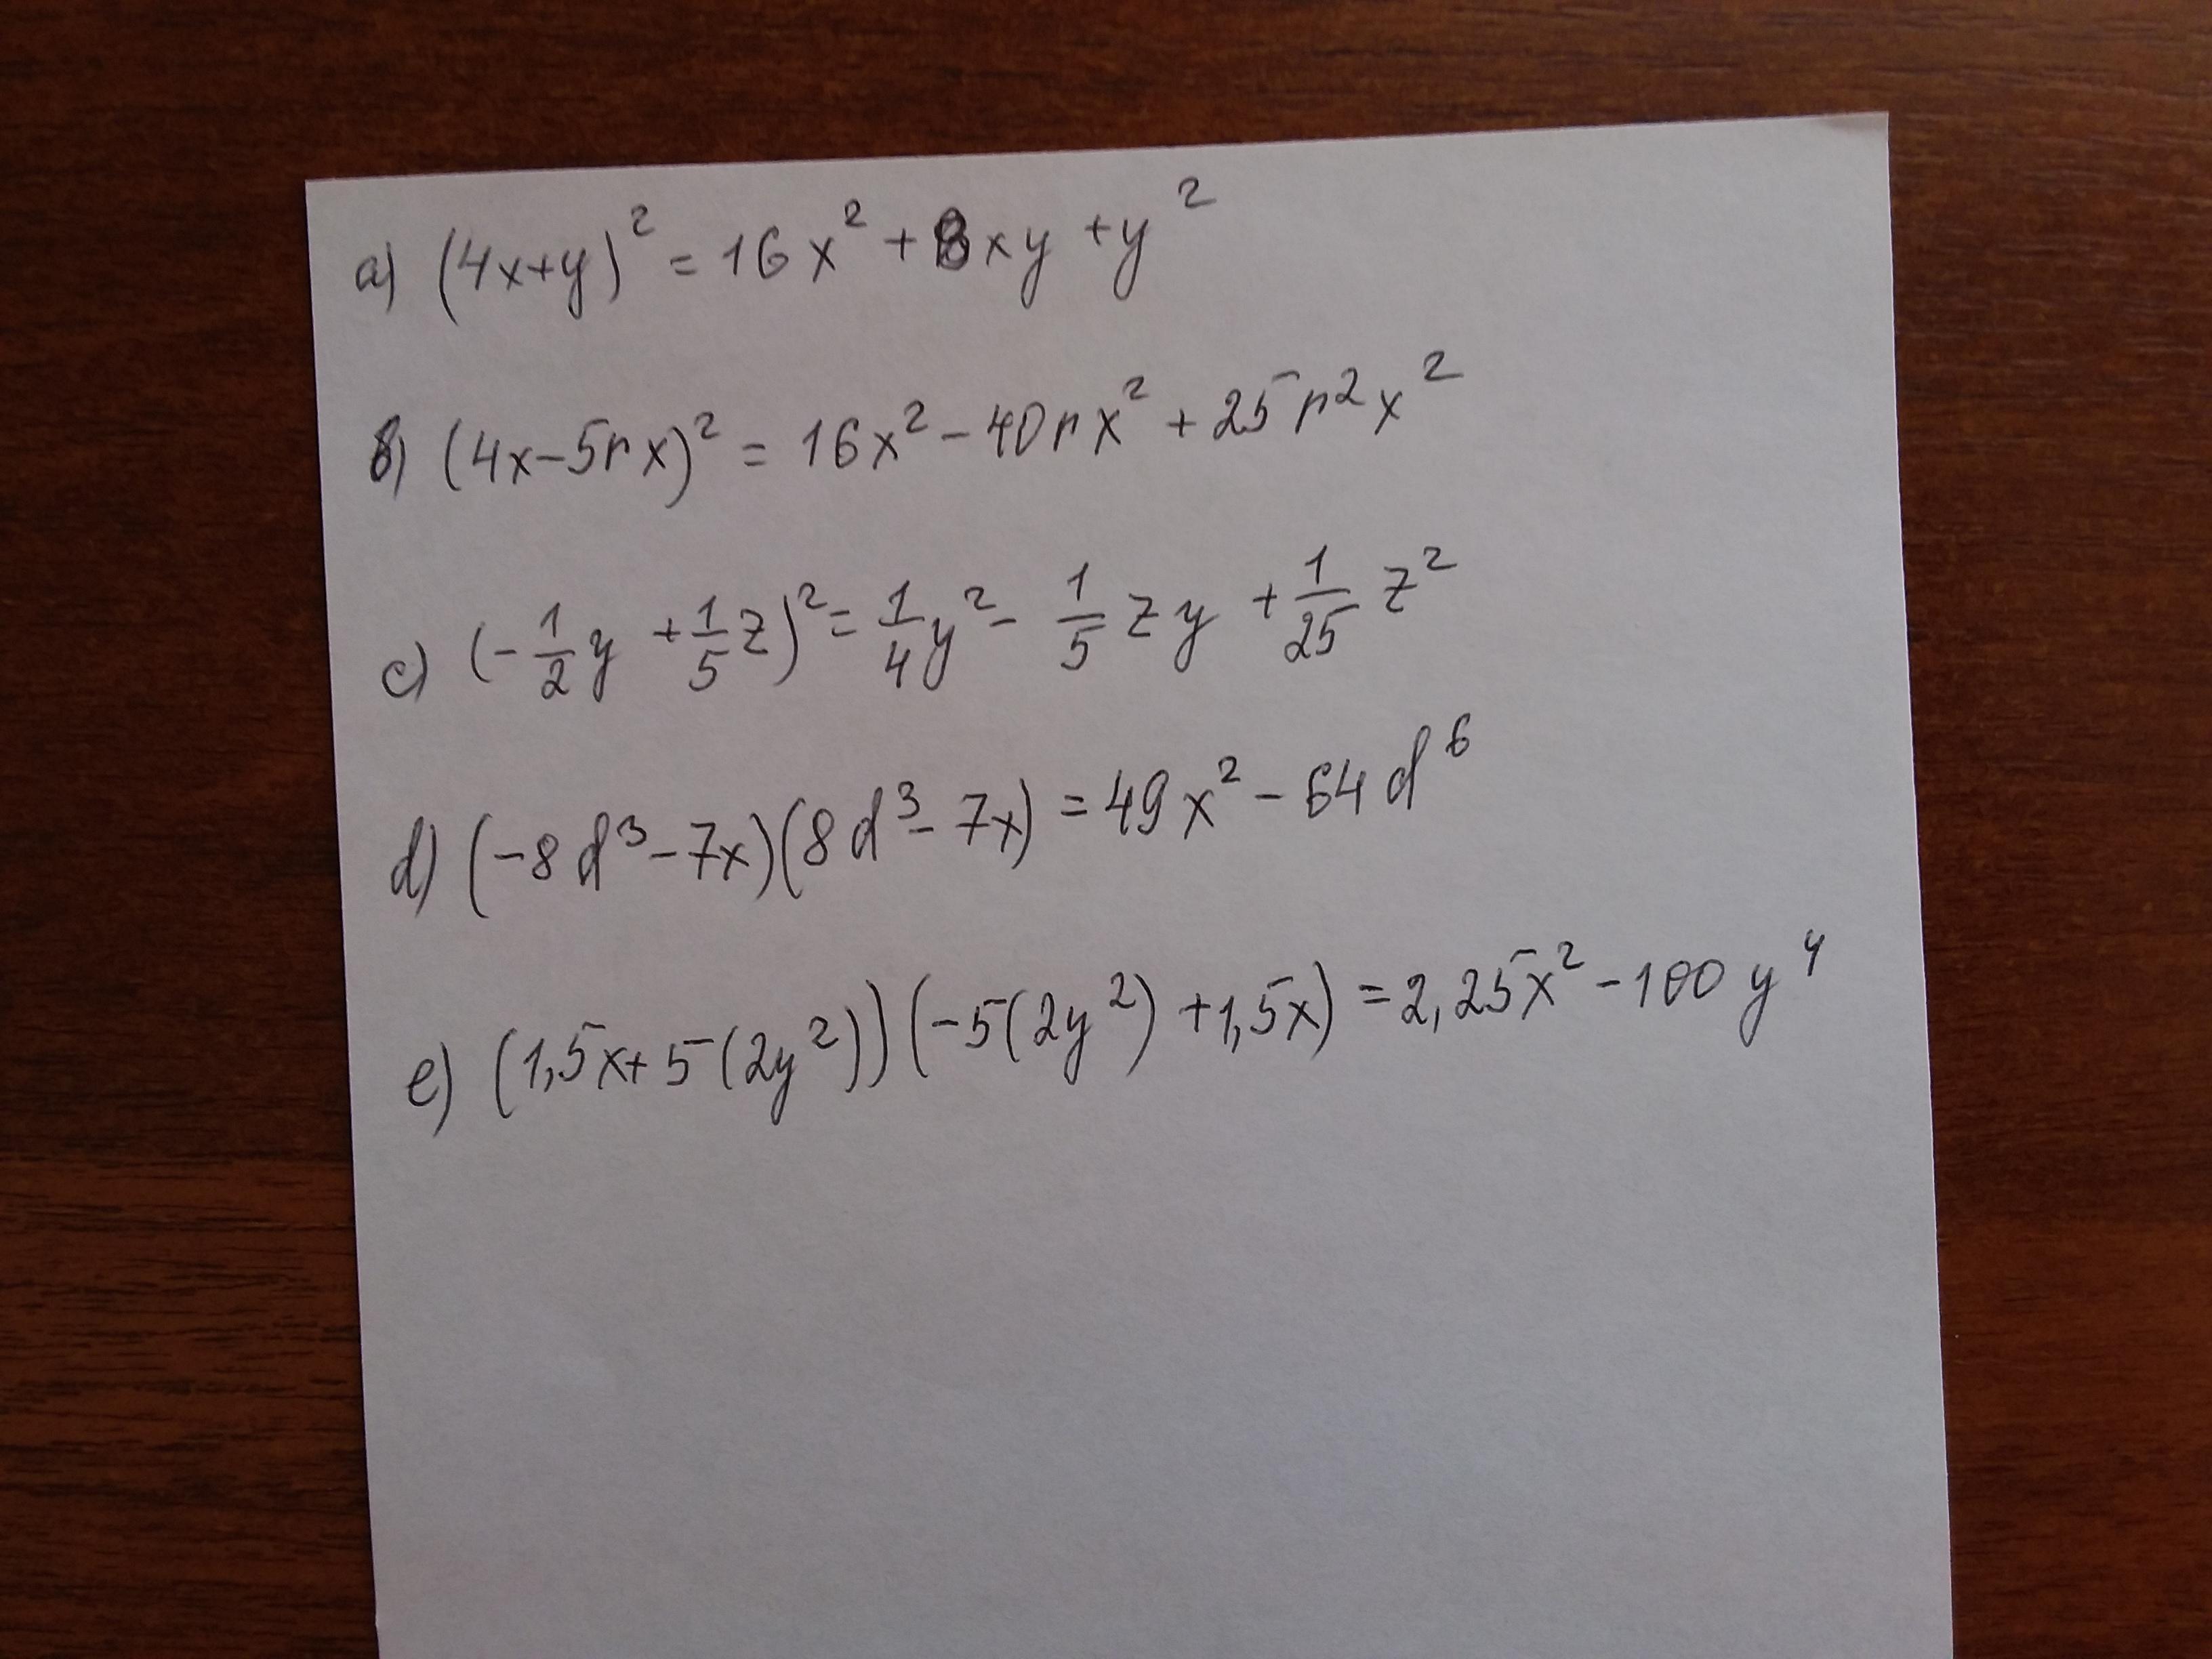 a) (4x+y)² = 16x² + 8xy + y²
b) (4x-5nx)² = 16x² - 40nx² + 25n²x²
c) (-1/2y + 1/5z)² = 1/4y² - 1/5zy + 1/25z²
d) (-8d³-7x)(8d³-7x) = 49x² - 64d⁶
e) (1,5x+5(2y²))(-5(2y²)+1,5x) = 2,25x² - 100y⁴